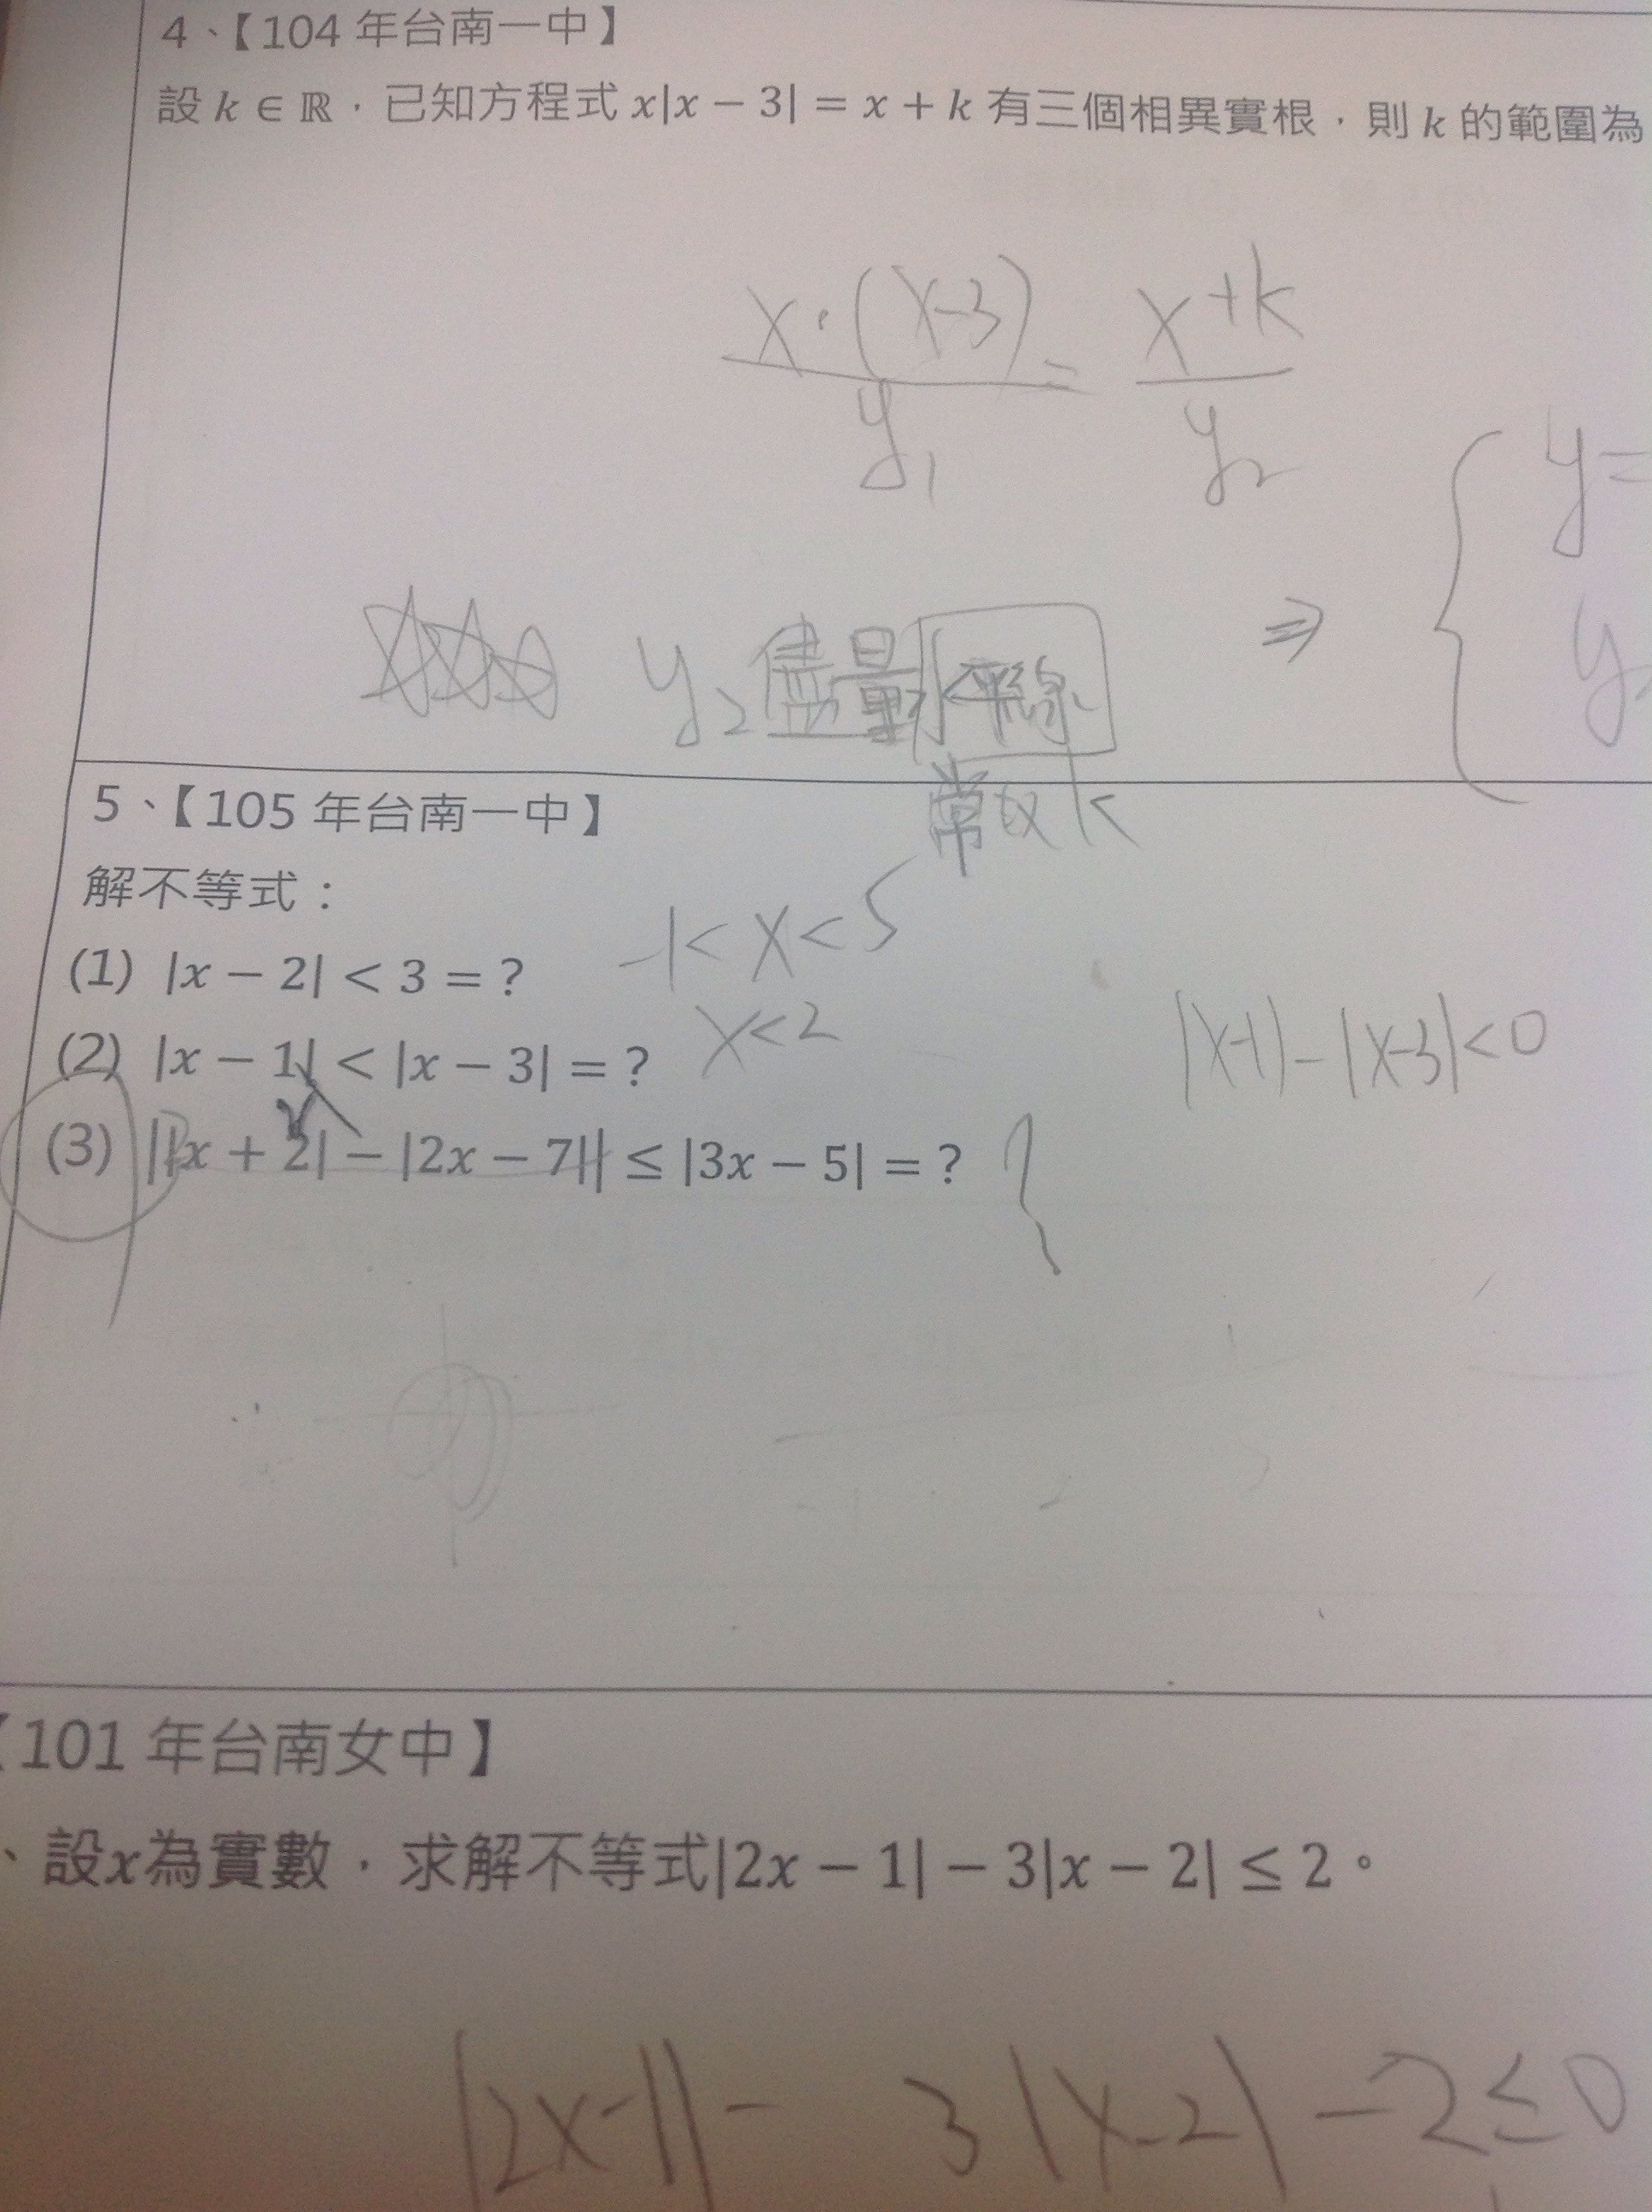 4、【104 年台南一中】
設 k ∈ ℝ，已知方程式 x|x − 3| = x + k 有三個相異實根，則 k 的範圍為
x·(x-3) = x+k
y₁ y₂
y=
y₂儘量水平線
y
常數k
5、【105 年台南一中】
解不等式：
(1) |x − 2| < 3 = ? -1<x<5
(2) |x − 1| < |x − 3| = ? x<2 |x-1|-|x-3|<0
(3) ||x + 2| − |2x − 7|| ≤ |3x − 5| = ?
【101 年台南女中】
、設x為實數，求解不等式|2x − 1| − 3|x − 2| ≤ 2。
|2x-1|- 3|x-2|-2≤0